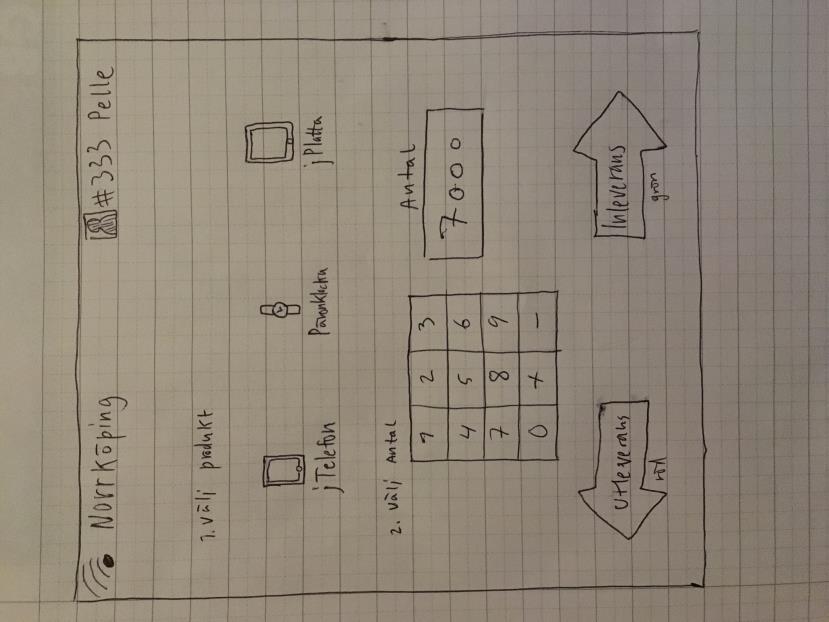 Norrköping #333 Pelle
1. välj produkt
jTelefon Päronklocka jPlatta
2. välj Antal
Antal
1 2 3
4 5 6
7 8 9
0 + -
7000
Utleverans
röd
Inleverans
grön